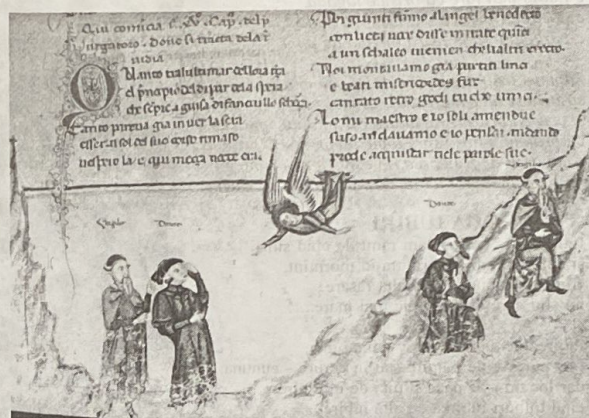 Qui comicia .xv. Cap. del p
urgatoro. doue si tracta dela i
nuidia
Quanto tralultimar dellora
el principio del di par dela spera
che sepre a guisa di fanciullo
Tanto pareua gia in uer la sera
esser al sol del suo corso rimaso
uespro la e qui meza nocte era.
Poi giunti fumo alangel benedecto
con lieta uoce disse intrate quici
a un schaleo uiemen che lialtri erecto.
Noi montauamo gia partiti linci
e beati misericordes fue
cantato retro godi tu che uinci.
Lo mi maestro e io soli amendue
suso andauamo e io pensai andando
prode acquistar nele parole sue.
Dante
Dante